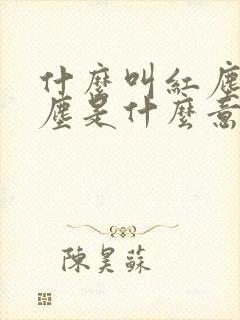 什麼叫紅塵
塵是什麼意
陳昊蘇